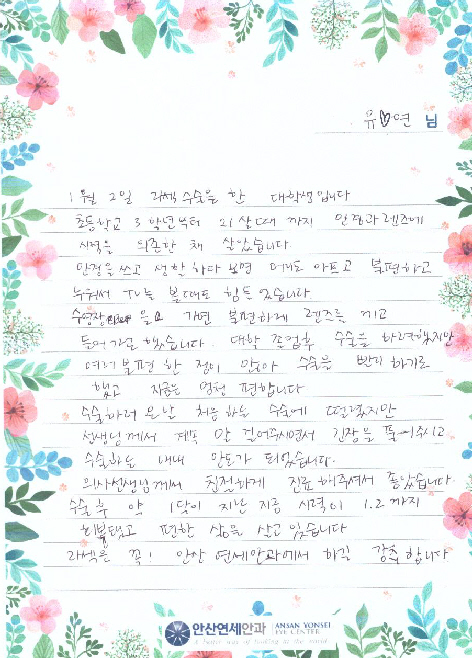 유♡연 님
1월 2일 라섹 수술을 한 대학생입니다
초등학교 3학년부터 21살때 까지 안경과 렌즈에
시력을 의존한 채 살았습니다.
안경을 쓰고 생활 하다 보면 머리도 아프고 불편하고
누워서 TV를 볼때도 힘들었습니다.
수영장 을 가면 불편하게 렌즈를 끼고
들어가곤 했습니다. 대학 졸업후 수술을 하려했지만
여러 불편 한 점이 많아 수술을 빨리 하기로
했고 지금은 엄청 편합니다
수술하러 온날 처음 하는 수술에 떨렸지만
선생님 께서 계속 말 걸어주시면서 긴장을 풀어주시고
수술하는 내내 안도가 되었습니다.
의사선생님께서 친절하게 진료 해주셔서 좋았습니다.
수술 후 약 1달이 지난 지금 시력이 1.2까지
회복됐고 편한 삶을 살고 있습니다
라섹은 꼭! 안산 연세안과에서 하길 강추합니다
안산연세안과 ANSAN YONSEI
EYE CENTER